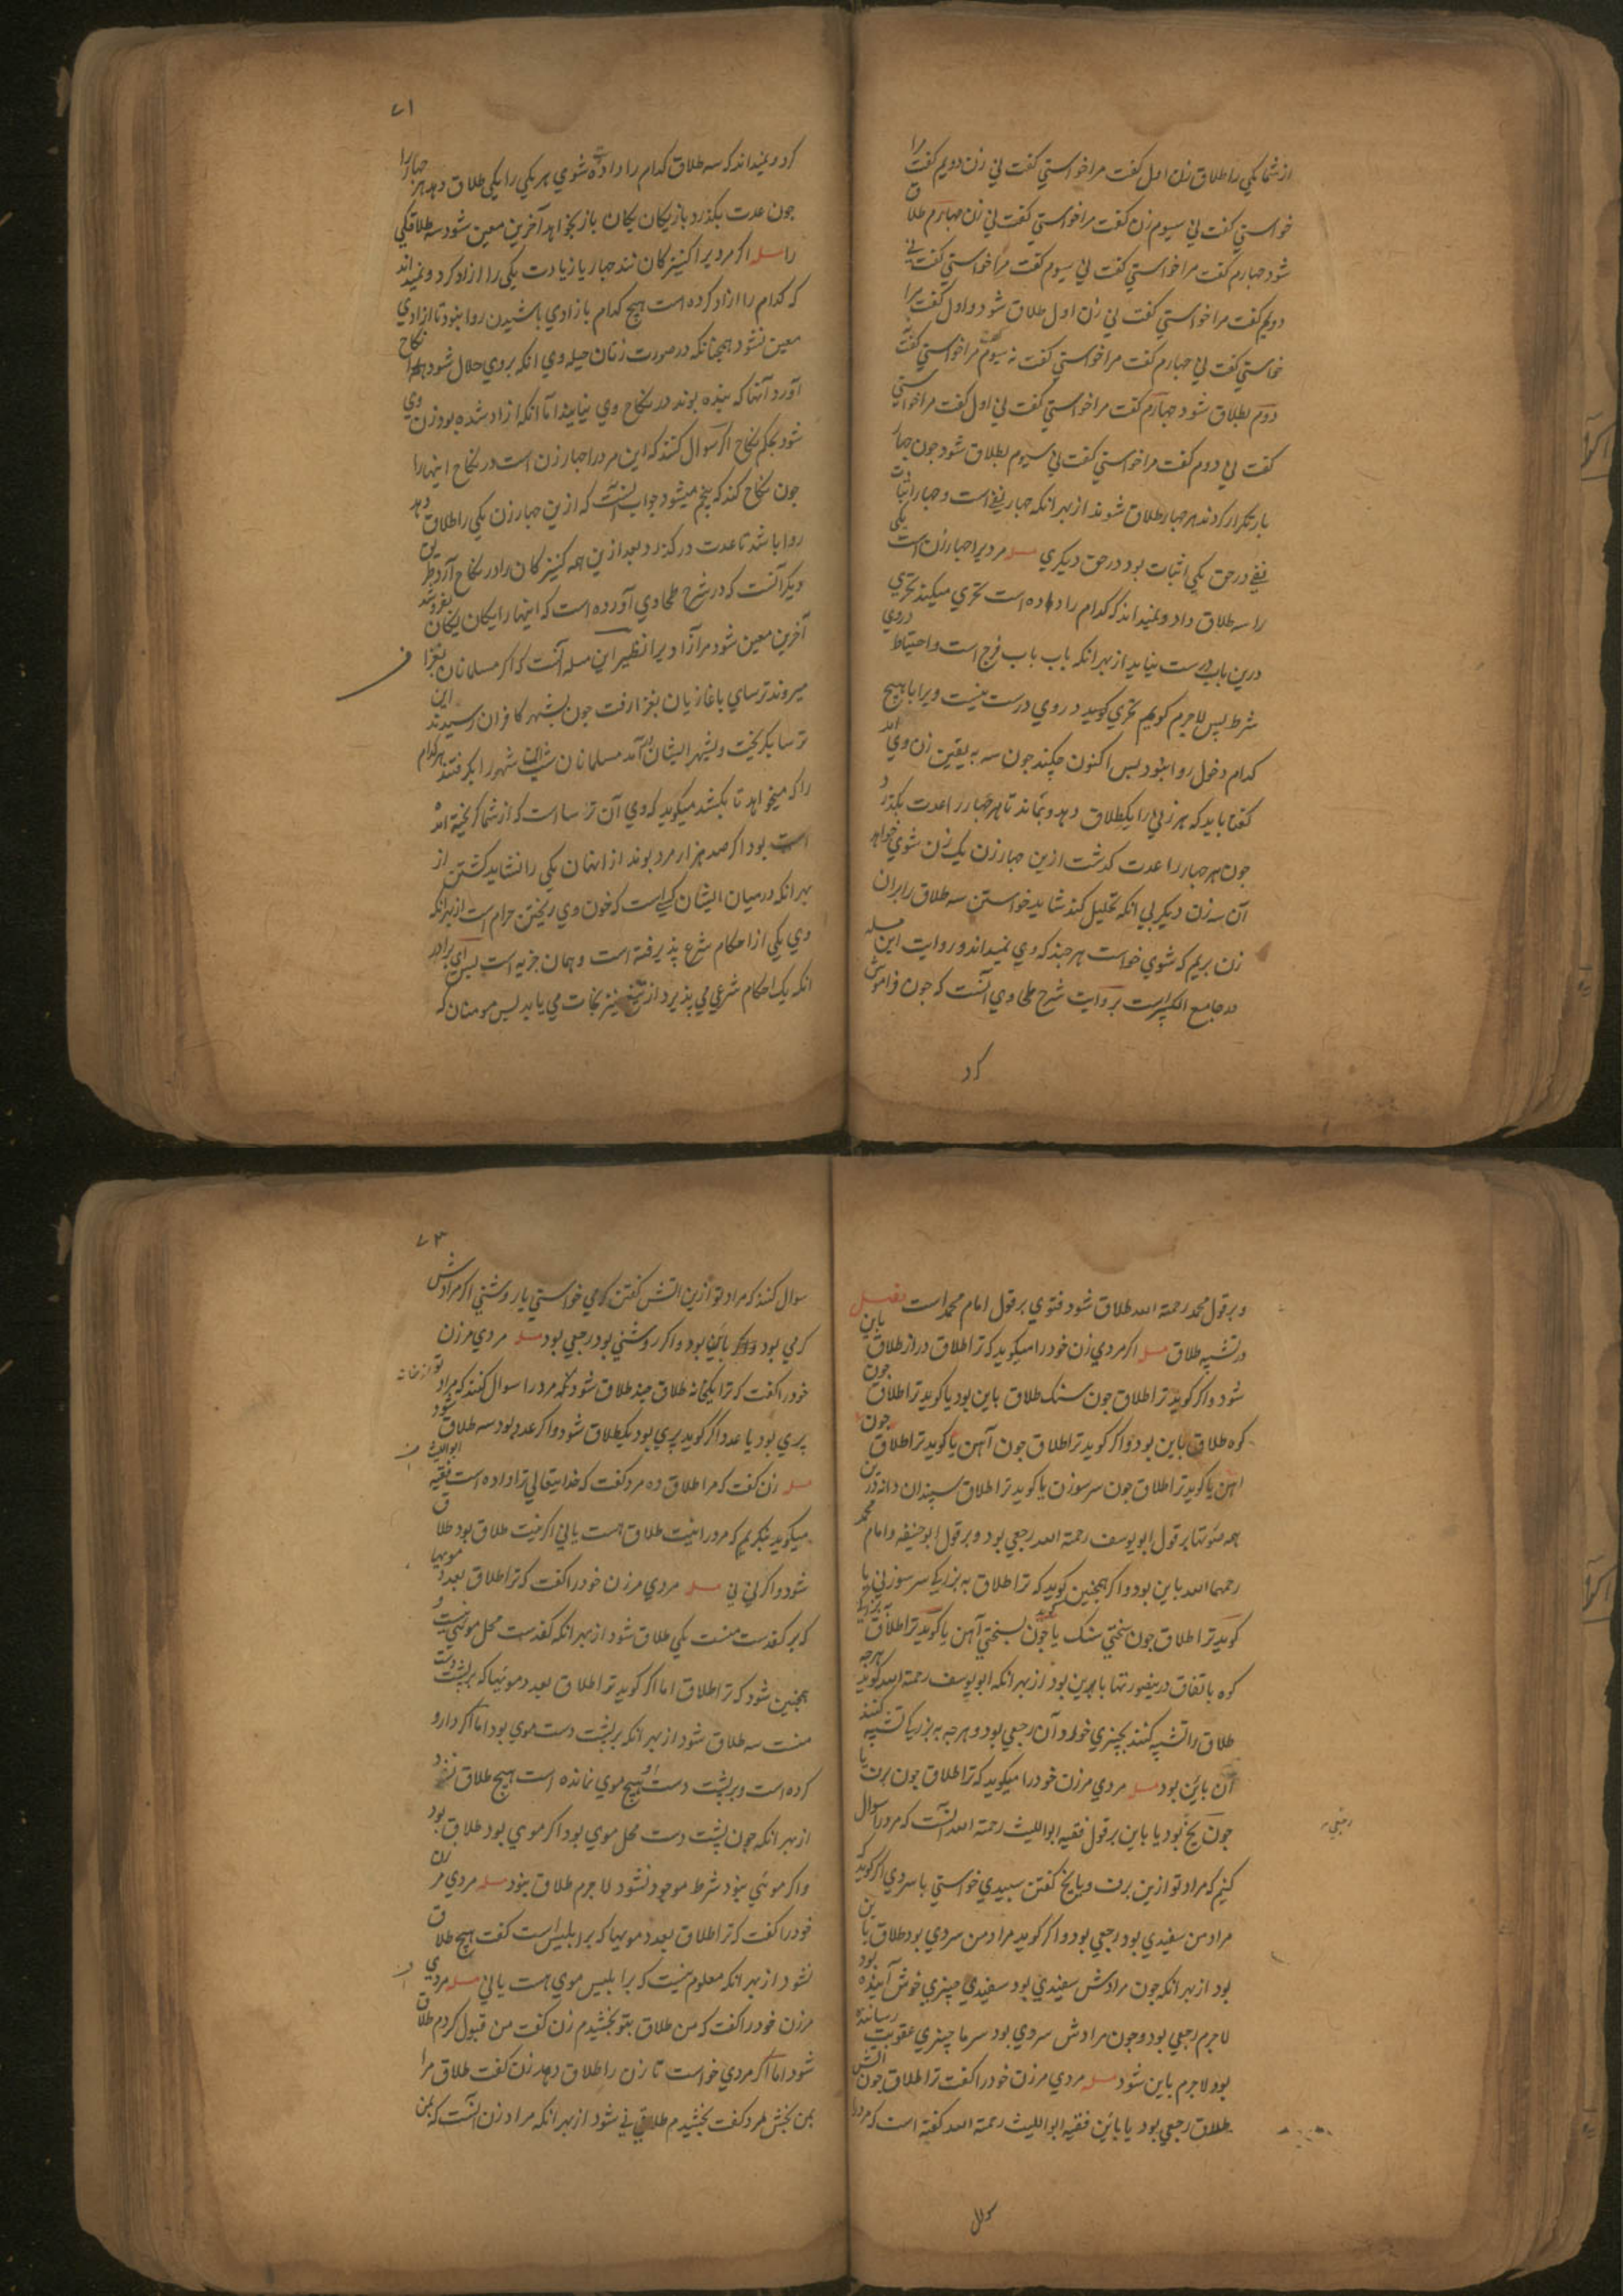 از شما یکی را طلاق زن اول گفت مرا خواستی گفت نی زن دویم گفت مرا
خواستی گفت نی سیوم زن گفت مرا خواستی گفت نی زن چهارم طلاق
شود چهارم گفت مرا خواستی گفت نی سیوم گفت مرا خواستی گفت نی
دویم گفت مرا خواستی گفت نی زن اول طلاق شود و اول گفت مرا
خاستی گفت نی چهارم گفت مرا خواستی گفت نه سیوم گفت مرا خواستی گفت
دوم بطلاق شود چهارم گفت مرا خواستی گفت نی اول گفت مرا خواستی
گفت نی دوم گفت مرا خواستی گفت نی سیوم بطلاق شود جون چهار
بار تکرار کردند هر چهار طلاق شوند از بهر انکه چهار نفی است و چهار اثبات
نفی در حق یکی اثبات بود در حق دیگری مسله مردیرا چهار زن است یکی
را سه طلاق داد و نمیداند که کدام را داده است تحری میکند تحری
درین باب درست نیاید از بهر انکه باب باب فرج است و احتیاط دروی
شرط پس لاجرم کویم تحری کوید دروی درست نیست ویرا با هیچ
کدام دخول روا نبود پس اکنون چکند جون سه به یقین زن وی اند
کفتا باید که هر زنی را یکطلاق دهد و بماند تا هر چهار را عدت بکذرد
جون هر چهار را عدت کذشت ازین چهار زن یک زن شوی خواهد
آن سه زن دیکر بی انکه تحلیل کند شاید خواستن سه طلاق را بران
زن بریم که شوی خواست هر چند که وی نمیداند و روایت این مسله
در جامع الکبیر است بروایت شرح طحاوی آنست که جون فراموش
کرد
۷۱
کرد و نمیداند که سه طلاق کدام را داده است شوی هر یکی را یکی طلاق دهد هر چهار را
جون عدت بکذرد باز یکان یکان باز بخواهد آخرین معین شود سه طلاقکی
را مسله اکر مردیرا کنیزکان اند چهار یا زیادت یکی را ازاد کرد و نمیداند
که کدام را ازاد کرده است هیچ کدام بازادی باشیدن روا نبود تا ازادی
معین نشود همچنانکه در صورت زنان حیله وی انکه بروی حلال شود نکاح
آورد آنها که بنده بوند در نکاح وی نیایند اما آنکه ازاد شده بود زن وی
شود بحکم نکاح اکر سوال کنند که این مرد را چهار زن است در نکاح اینها را
جون نکاح کند که پنجم میشود جواب آنست که ازین چهار زن یکی را طلاق دهد
روا باشد تا عدت درکذرد بعد ازین همه کنیزکان را در نکاح آرد طریق
دیکر آنست که در شرح طحاوی آورده است که اینها را یکان یکان بفروشد
آخرین معین شود مر آزادیرا نظیر این مسله آنست که اکر مسلمانان بغزا
میروند ترسای با غازیان بغزا رفت جون بشهر کافران رسیدند این
ترسا بکریخت و بشهر ایشان در آمد مسلمانان شهر را بکرفتند هر کدام
را که میخواهد تا بکشد میکوید که وی آن ترسا است که از شما کریخته آمده
است بود اکر صد هزار مرد بوند از ایشان یکی را نشاید کشتن از
بهر انکه در میان ایشان کسی است که خون وی ریختن حرام است از بهر انکه
وی یکی از احکام شرع پذیرفته است و همان جزیه است پس ای برادر
انکه یک احکام شرعی می پذیرد از تیغ تیز نجات می یابد پس مومنان که
و بر قول محمد رحمة الله طلاق شود فتوی بر قول امام محمد است فصل
در تشبیه طلاق مسله اکر مردی زن خود را میکوید که ترا طلاق دراز طلاق باین
شود و اکر کوید ترا طلاق جون سنک طلاق باین بود یا کوید ترا طلاق جون
کوه طلاق باین بود و اکر کوید ترا طلاق جون آهن یا کوید ترا طلاق جون
اهن یا کوید ترا طلاق جون سر سوزن یا کوید ترا طلاق سپندان دانه درین
همه صورتها بر قول ابو یوسف رحمة الله رجعی بود و بر قول ابو حنیفه و امام محمد
رحمهما الله باین بود و اکر همجنین کوید که ترا طلاق به بزرکی سر سوزنی یا
کوید ترا طلاق جون سختی سنک یا کوید جون بسختی آهن یا کوید ترا طلاق به بزرکی
کوه باتفاق درینصورتها باین بود از بهر انکه ابو یوسف رحمة الله کوید هر چه
طلاق را تشبیه کنند بچیزی خورد آن رجعی بود و هر چه به بزرکی تشبیه کنند
آن باین بود مسله مردی مر زن خود را میکوید که ترا طلاق جون برف یا
جون یخ بود یا باین بر قول فقیه ابو اللیث رحمة الله آنست که مرد را سوال
رجعی
کنیم که مراد تو ازین برف و یا یخ کفتن سپیدی خواستی یا سردی اکر کوید که
مراد من سفیدی بود رجعی بود و اکر کوید مراد من سردی بود طلاق باین
بود از بهر انکه جون مرادش سفیدی بود سفیدی چیزی خوش آینده بود
لاجرم رجعی بود و جون مرادش سردی بود سرما چیزی عقوبت رساننده
بود لاجرم باین شود مسله مردی مر زن خود را کفت ترا طلاق جون آتش
طلاق رجعی بود یا باین فقیه ابو اللیث رحمة الله کفته است که مرد را
سوال
۷۳
سوال کنند که مراد تو ازین اتش کفتن کرمی خواستی یا روشنی اکر مرادش
کرمی بود باین بود و اکر روشنی بود رجعی بود مسله مردی مر زن
خود را کفت که ترا یکخانه طلاق چند طلاق شود کفته مرد را سوال کنند که مراد تو از خانه
پری بود یا عدد اکر کوید پری بود یکطلاق شود و اکر عدد بود سه طلاق شود
مسله زن کفت که مرا طلاق ده مرد کفت که خدایتعالی ترا داده است فقیه ابو اللیث
میکوید بنکریم که مرد را نیت طلاق هست یا نی اکر نیت طلاق بود طلاق
شود و اکر نی نی مسله مردی مر زن خود را کفت که ترا طلاق بعدد مویها
که بر کفدست منست یکی طلاق شود از بهر انکه کفدست محل موی نیست و
همجنین شود که ترا طلاق اما اکر کوید ترا طلاق بعدد مویها که بر پشت دست
منست سه طلاق شود از بهر انکه بر پشت دست موی بود اما اکر دارو
کرده است و بر پشت دست او هیچ موی نمانده است هیچ طلاق نشود
از بهر انکه چون پشت دست محل موی بود اکر موی بود طلاق بود
و اکر موئی نبود شرط موجود نشود لاجرم طلاق نبود مسله مردی مر زن
خود را کفت که ترا طلاق بعدد مویها که بر ابلیس است کفت هیچ طلاق
نشود از بهر انکه معلوم نیست که بر ابلیس موی هست یا نی مسله مردی
مر زن خود را کفت که من طلاق بتو بخشیدم زن کفت من قبول کردم طلاق
شود اما اکر مردی خواست تا زن را طلاق دهد زن کفت طلاق مرا
بمن بخش مرد کفت بخشیدم طلاق نی شود از بهر انکه مراد زن آنست که بمن